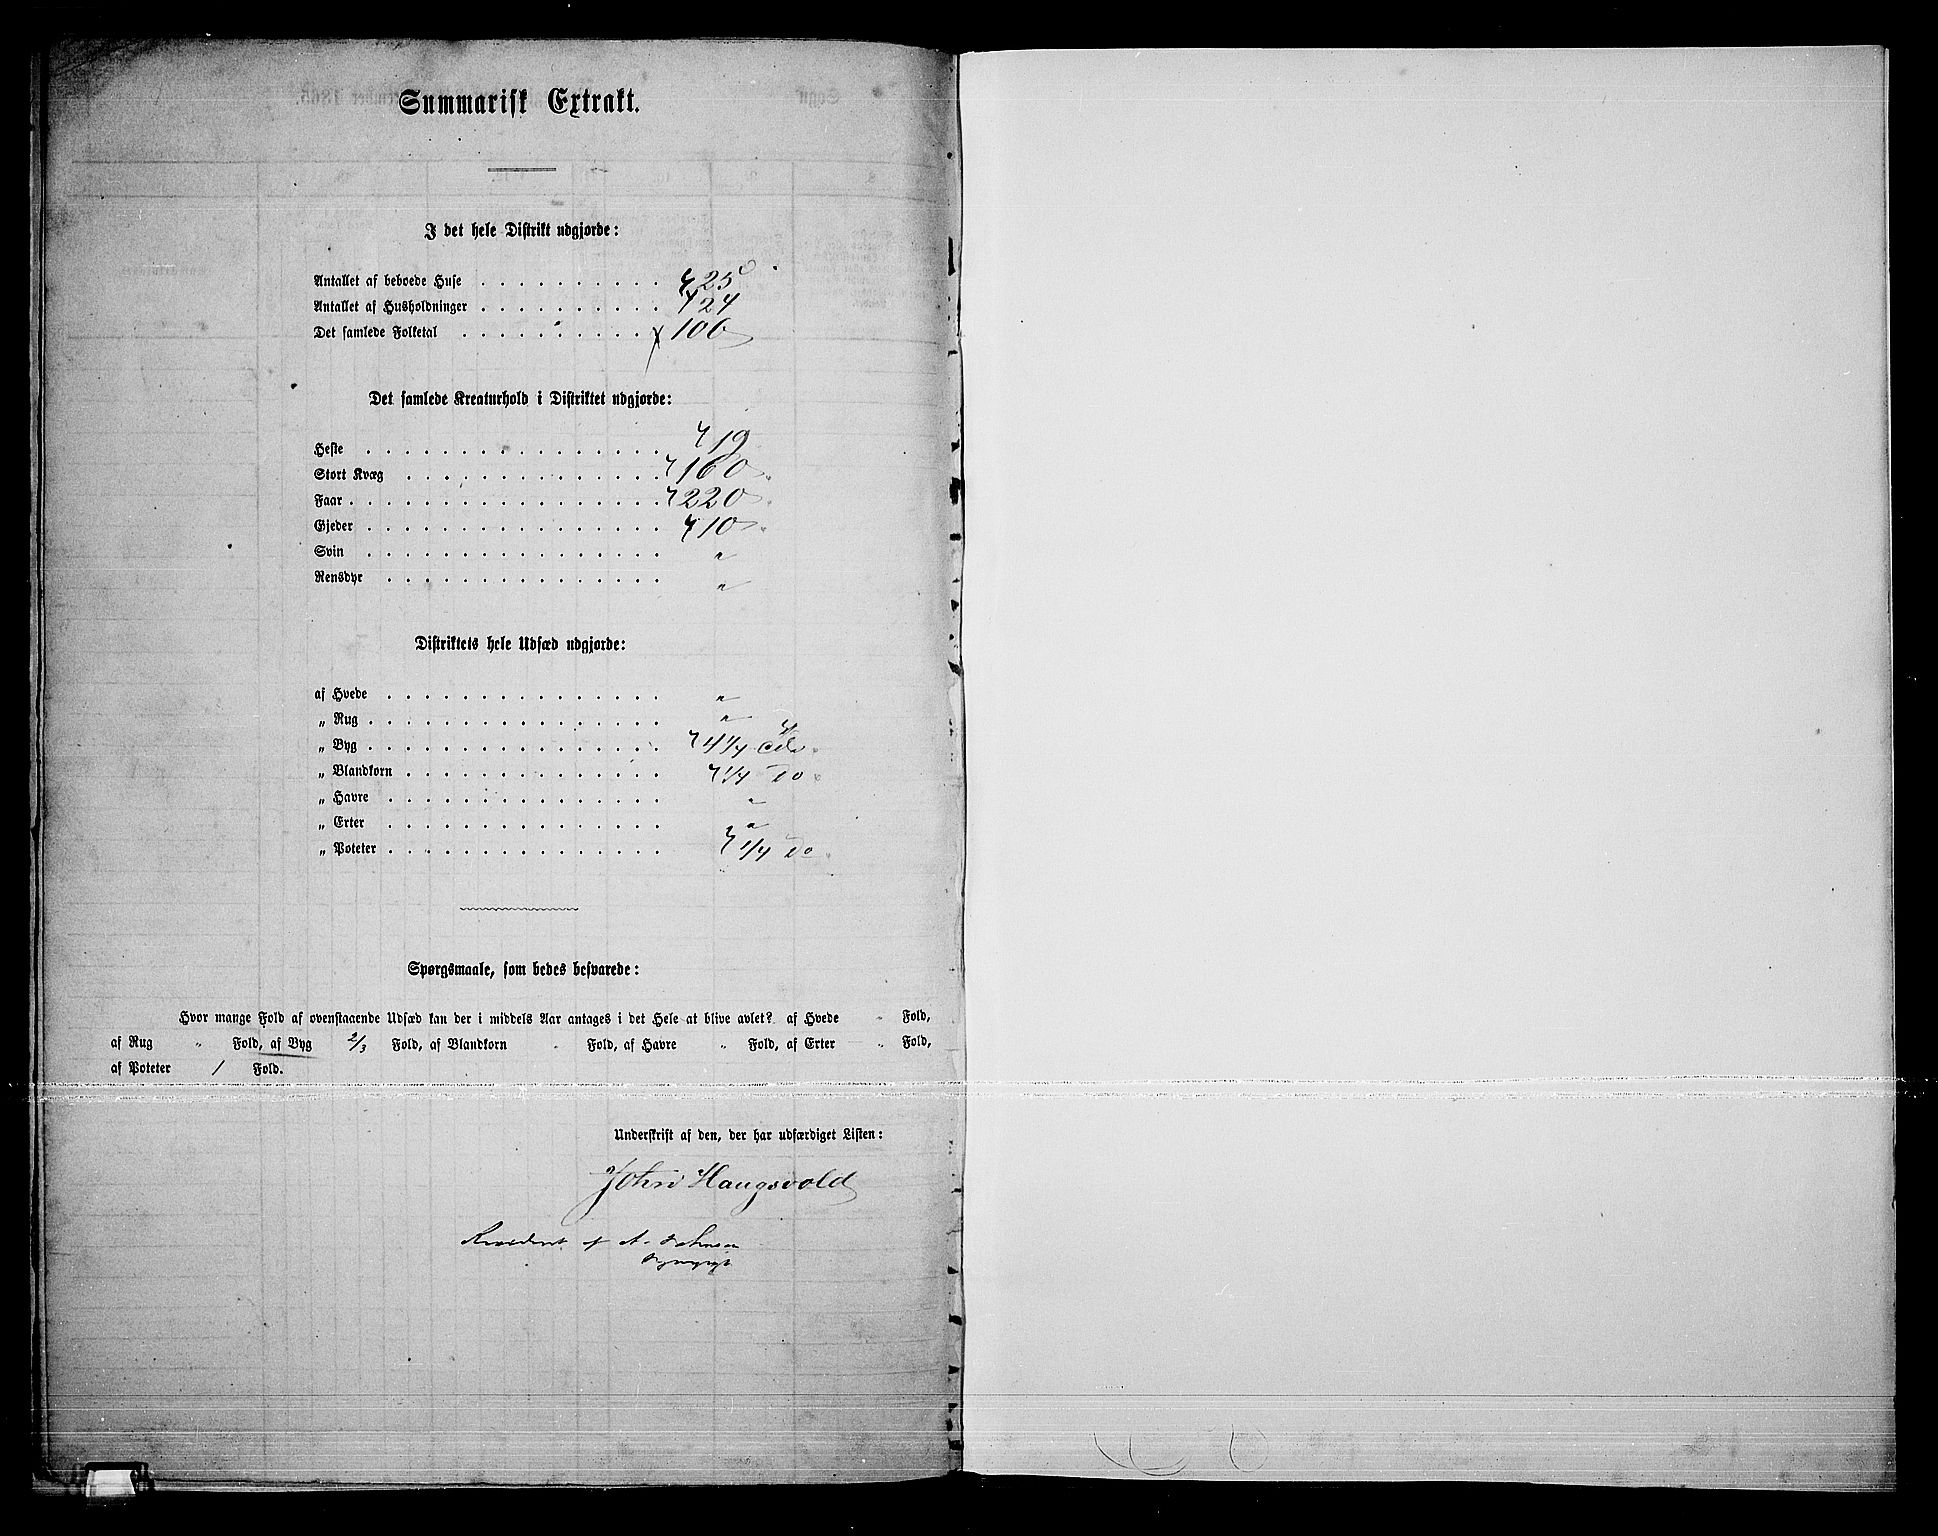 Summarisk Extrakt.
I det hele Distrikt udgjorde:
Antallet af beboede Huse . . . . . . . . . . 25
Antallet af Husholdninger . . . . . . . . . . 24
Det samlede Folketal . . . . . . . . . . 106
Det samlede Kreaturhold i Distriktet udgjorde:
Heste . . . . . . . . . . . . . . . . 19
Stort Kvæg . . . . . . . . . . . . . . 160
Faar . . . . . . . . . . . . . . . . . 220
Gjeder . . . . . . . . . . . . . . . . 10
Svin . . . . . . . . . . . . . . . . "
Rensdyr . . . . . . . . . . . . . . . "
Distriktets hele Udsæd udgjorde:
af Hvede . . . . . . . . . . . . . . . "
„ Rug . . . . . . . . . . . . . . . . "
„ Byg . . . . . . . . . . . . . . . . 4 1/4
„ Blandkorn . . . . . . . . . . . . . . 1/4 do
„ Havre . . . . . . . . . . . . . . . "
„ Erter . . . . . . . . . . . . . . . "
„ Poteter . . . . . . . . . . . . . . . 1/4 do
Spørgsmaale, som bedes besvarede:
Hvor mange Fold af ovenstaaende Udsæd kan der i middels Aar antages i det Hele at blive avlet? af Hvede " Fold,
af Rug " Fold, af Byg 2/3 Fold, af Blandkorn " Fold, af Havre " Fold, af Erter " Fold,
af Poteter 1 Fold.
Underskrift af den, der har udfærdiget Listen:
John Haugsvold
Revideret af A.